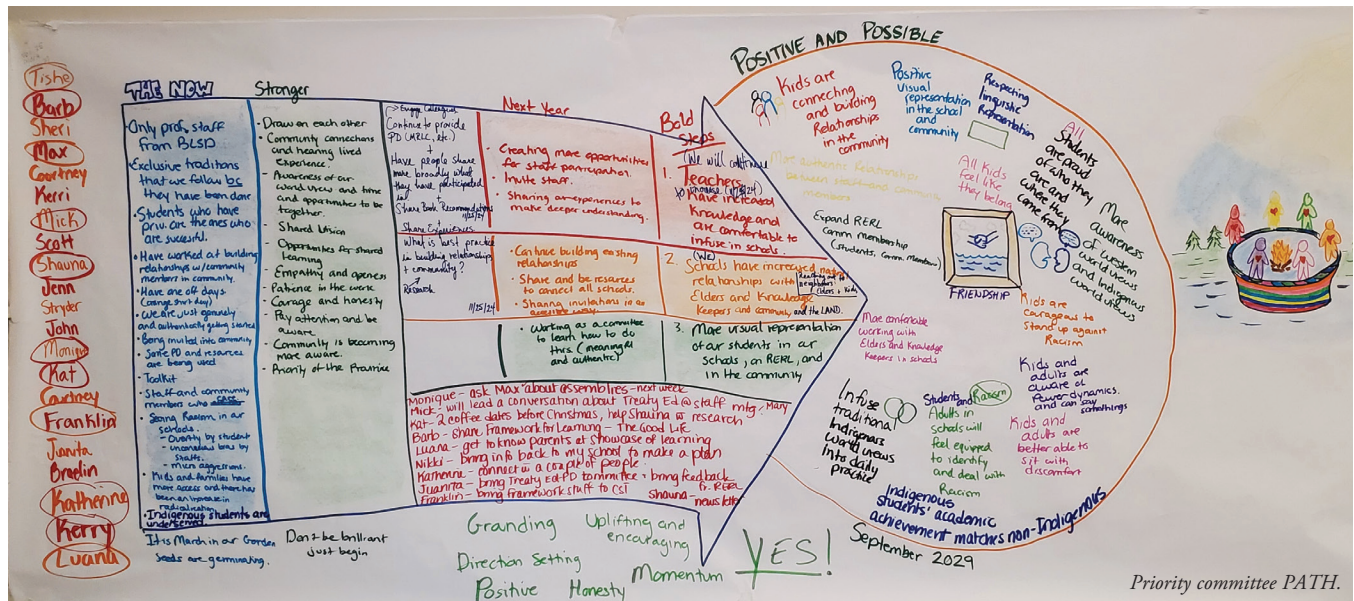 Tishe
Barb
Sheri
Max
Courtney
Kerri
Mick
Scott
Shauna
Jenn
Stryder
John
Monique
Kat
Courtney
Franklin
Juanita
Braelin
Katherine
Kerry
Luana
THE NOW
- Only prof. staff
from BLSD
- Exclusive traditions
that we follow bc
they have been done
- Students who have
priv. are the ones who
are sucessful.
- Have worked at building
relationships w/community
members in community.
- Have one off days
(orange shirt day)
- We are just genuinely
and authentically getting started
- Being invited into community
- Some PD and resources
are being used
- Toolkit
- Staff and community
members who
Racism, in our
schools.
- Overtly by student
unconscious bias by
staffs.
- micro aggressions.
- Kids and families have
more access and there has
been an increase in
radicalization
- Indigenous students are
underserved
It is March in our Garden
Seeds are germinating.
Stronger
- Draw on each other
- Community connections
and hearing lived
experience.
- Awareness of our
world view and time
and opportunities to be
together.
- Shared Vision
- Opportunities for shared
Learning
- Empathy and openess
- Patience in the work
- Courage and honesty
- Pay attention and be
aware.
- Community is becoming
more aware.
- Priority of the Province
Don't be brilliant
just begin
Engage Colleagues
Continue to provide
PD (MRLC, etc.)
+
Have people share
more broadly what
they have participated
in
+
Share Book Recommendations
11/25/24
+
Share Experiences
What is best practice
in building relationships
+ community?
Research
11/25/24
Next Year
• Creating more opportunities
for staff participation.
• Invite staff.
• Sharing experiences to
make deeper understanding.
• Continue building existing
relationships
• Share and be resources
to connect all schools.
• Sharing invitations in an
accessible way.
• Working as a committee
to learn how to do
this (meaningful
and authentic)
Bold
Steps
(We will continue
1. Teachers
to increase (11/25/24)
have increased
Knowledge and
are comfortable to
infuse in schools.
(We)
2. Schools have increased
relationships with
Elders + Kids
Elders and Knowledge
Keepers and community, and the LAND.
3. More visual representation
of our students in our
schools, on RERL, and
in the community
Monique - ask Max about assemblies - next week
Mick - will lead a conversation about Treaty Ed @ staff mtg, Mary
Kat - 2 coffee dates before Christmas, help Shauna w research
Barb - share Framework for Learning - The Good Life
Luana - get to know parents at showcase of learning
Nikki - bring info back to my school to make a plan
Katherine - connect w a couple of people
Juanita - bring Treaty Ed-PD committee + bring feedback
fr. RERL
Franklin - bring Framework stuff to CST
Shauna - newsletter
Grounding
Uplifting and
encouraging
Direction Setting
Positive
Honesty
Momentum
YES!
POSITIVE AND POSSIBLE
Kids are
connecting
and building
Relationships
in the
community
Positive
visual
representation
in the school
and
community
Respecting
linguistic
Representation
More authentic Relationships
between staff and community
members
All Kids
feel like
they belong
All
Students
are proud
of who they
are and
where they
come from
Expand RERL
Comm membership
(students, comm. members)
FRIENDSHIP
More
awareness
of western
world views
and Indigenous
world views
Kids are
Courageous to
Stand up against
Racism
More comfortable
working with
Elders and Knowledge
Keepers in schools
Kids and
adults are
aware of
Power dynamics.
and can say
somethings
Infuse
traditional
Indigenous
world views
into daily
practice
Students and
Racism
Adults in
schools will
feel equipped
to identify
and deal with
Racism
Kids and
adults are
better able to
sit with
discomfort
Indigenous
students' academic
achievement matches non-Indigenous
September 2029
Priority committee PATH.